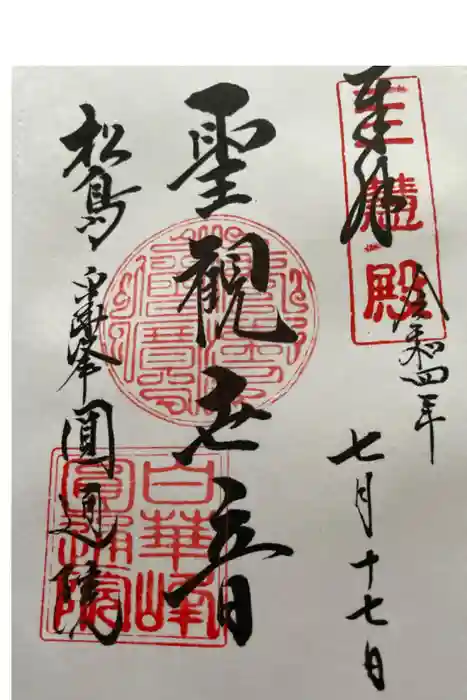 奉拝
三慧殿
令和四年
七月十七日
聖観世音
松島
白華峰
圓通院
白華峰
圓通院